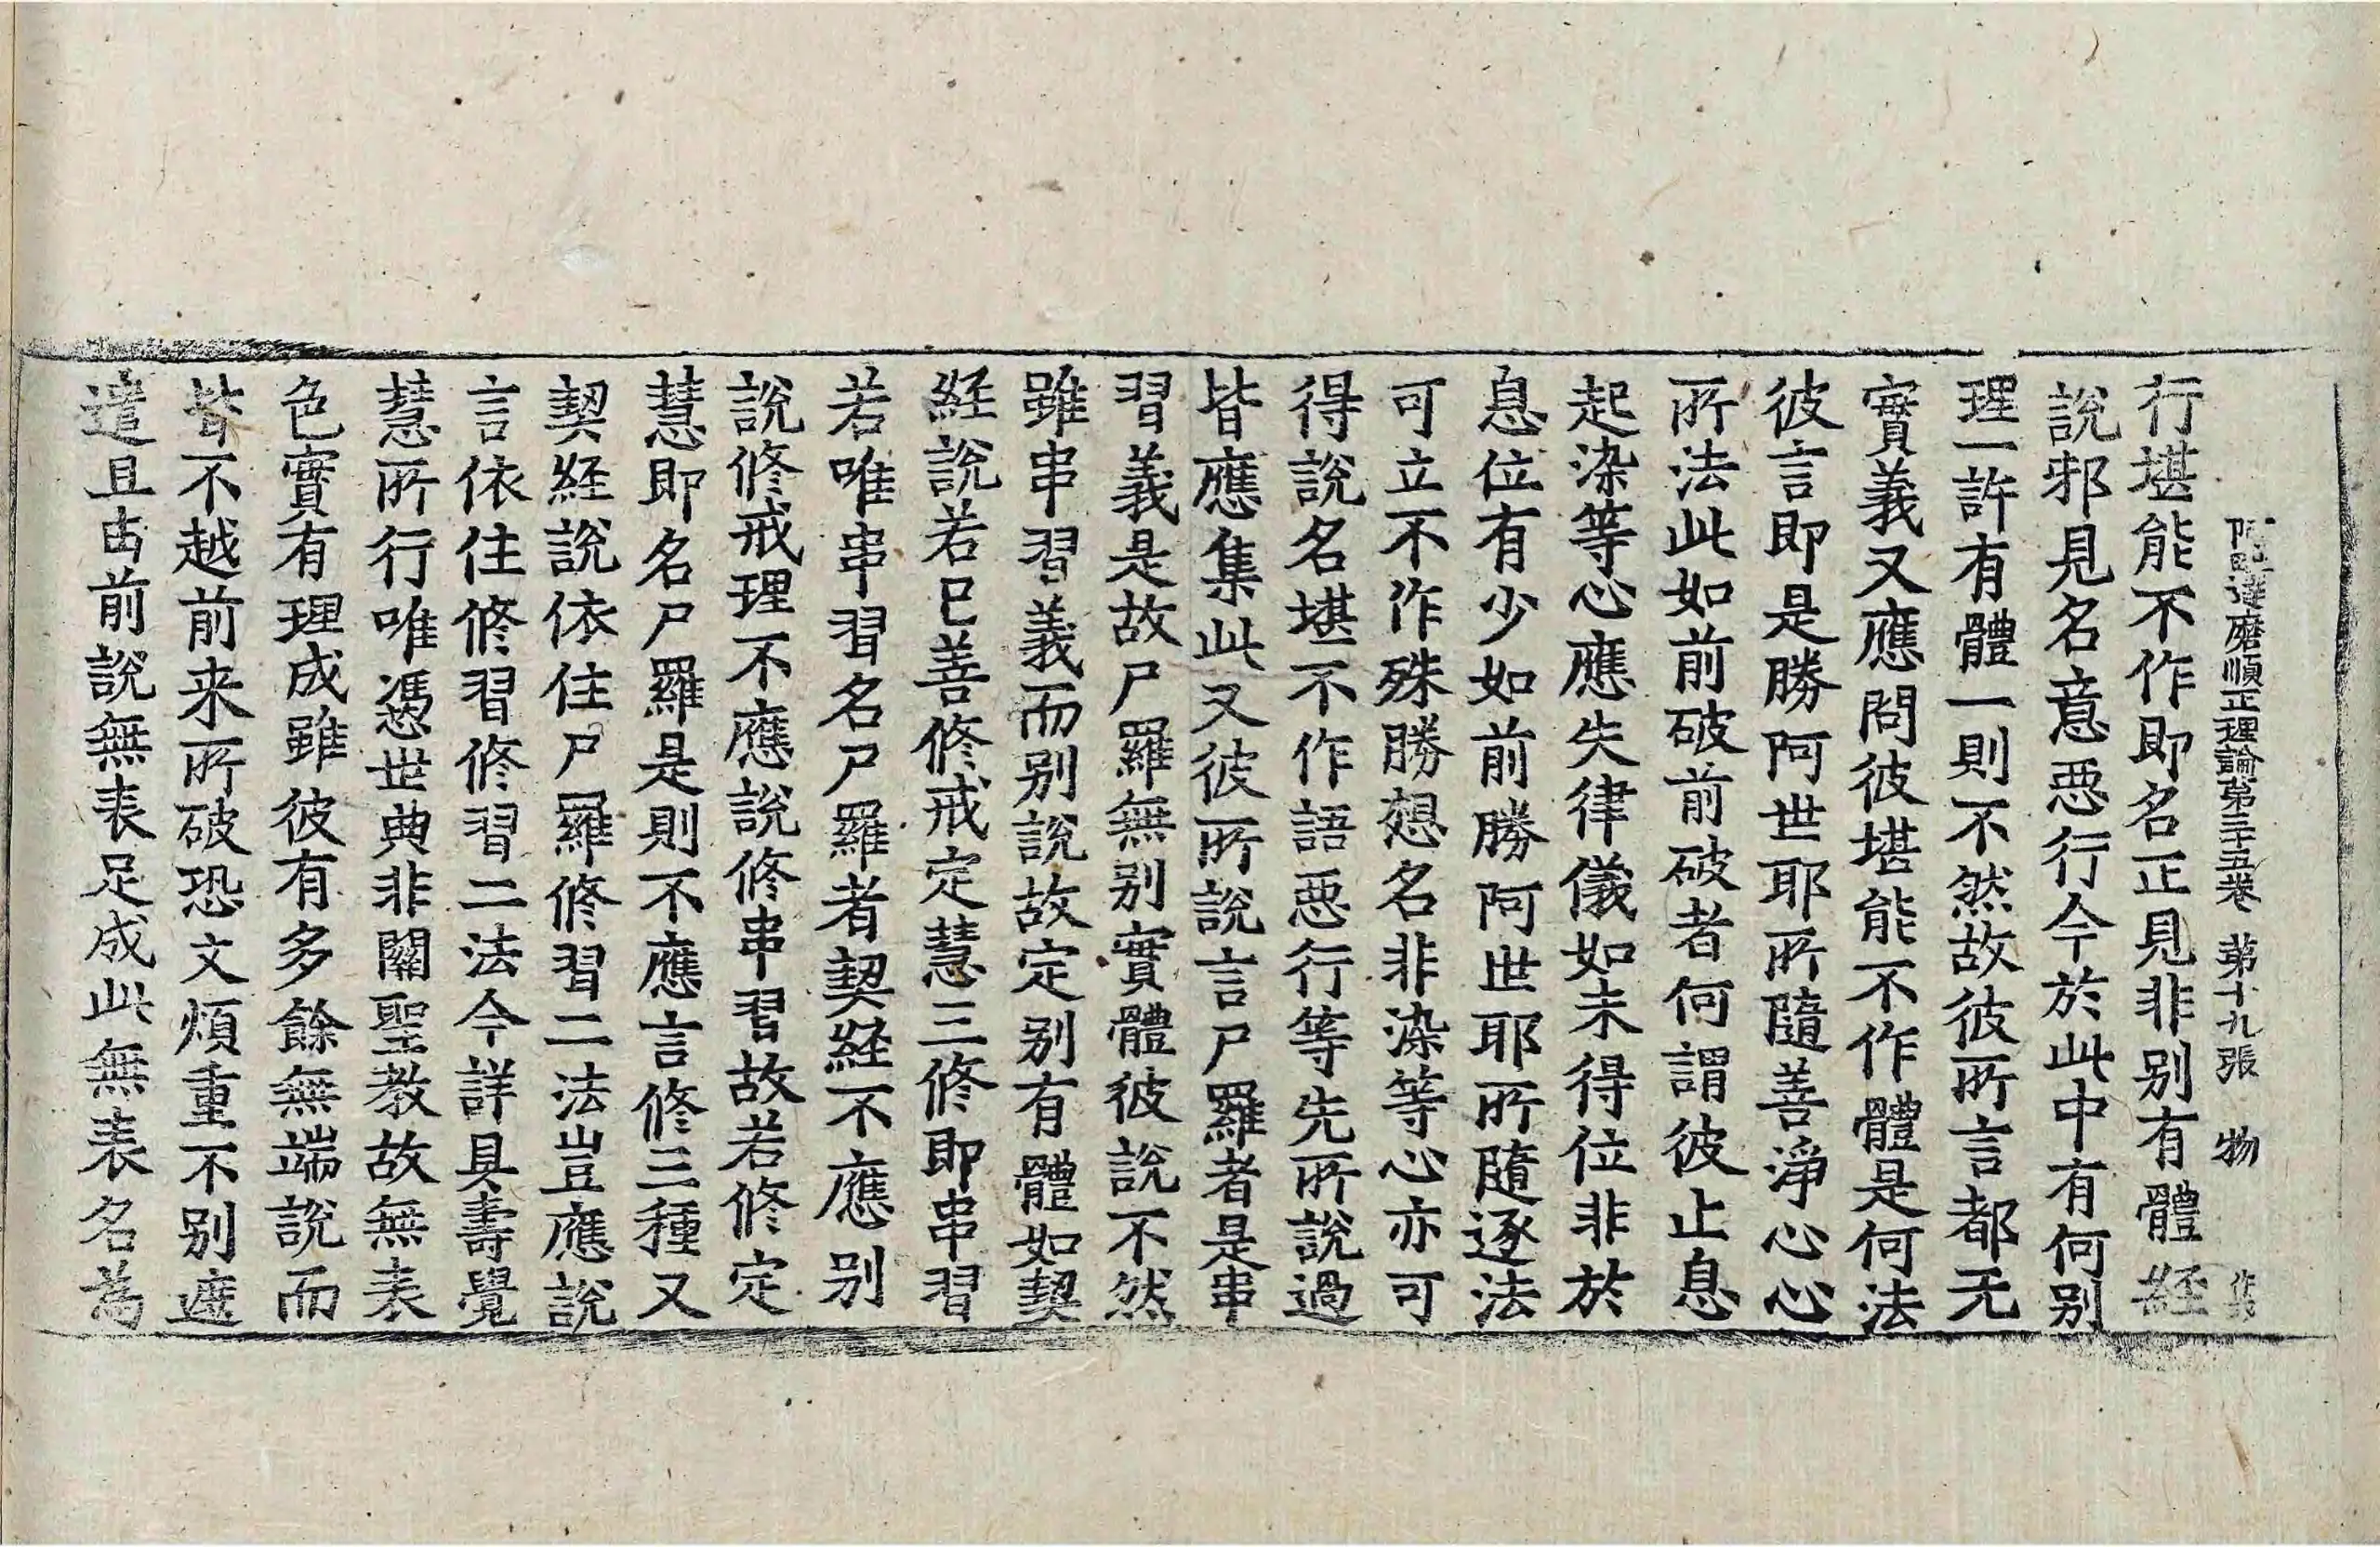 阿毗達磨順正理論第三十五卷 第十九張 物
行堪能不作即名正見非别有體經
說邪見名意惡行今於此中有何别
理一許有體一則不然故彼所言都无
實義又應問彼堪能不作體是何法
彼言即是勝阿世耶所隨善淨心心
所法此如前破前破者何謂彼止息
起染等心應失律儀如未得位非於
息位有少如前勝阿世耶所隨逐法
可立不作殊勝想名非染等心亦可
得說名堪不作語惡行等先所說過
皆應集此又彼所說言尸羅者是串
習義是故尸羅無别實體彼說不然
雖串習義而别說故定别有體如契
經說若已善修戒定慧三修即串習
若唯串習名尸羅者契經不應别
說修戒理不應說修串習故若修定
慧即名尸羅是則不應言修三種又
契經說依住尸羅修習二法豈應說
言依住修習修習二法今詳具壽覺
慧所行唯憑世典非關聖教故無表
色實有理成雖彼有多餘無端說而
皆不越前来所破恐文煩重不别遮
遣且由前說無表足成此無表名為